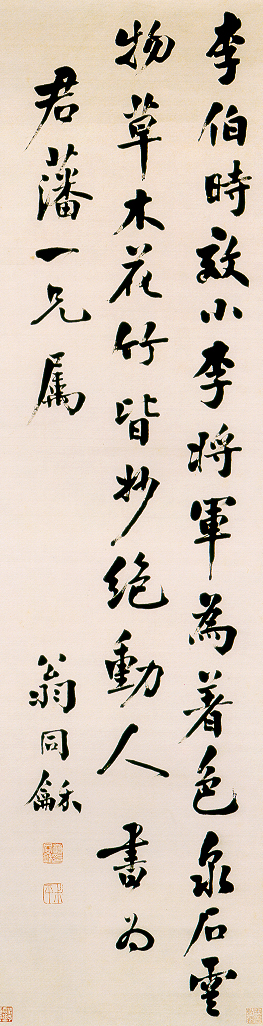 李伯時效小李將軍為著色泉石雲
物草木花竹皆妙絶動人書為
君藩一兄属
翁同龢